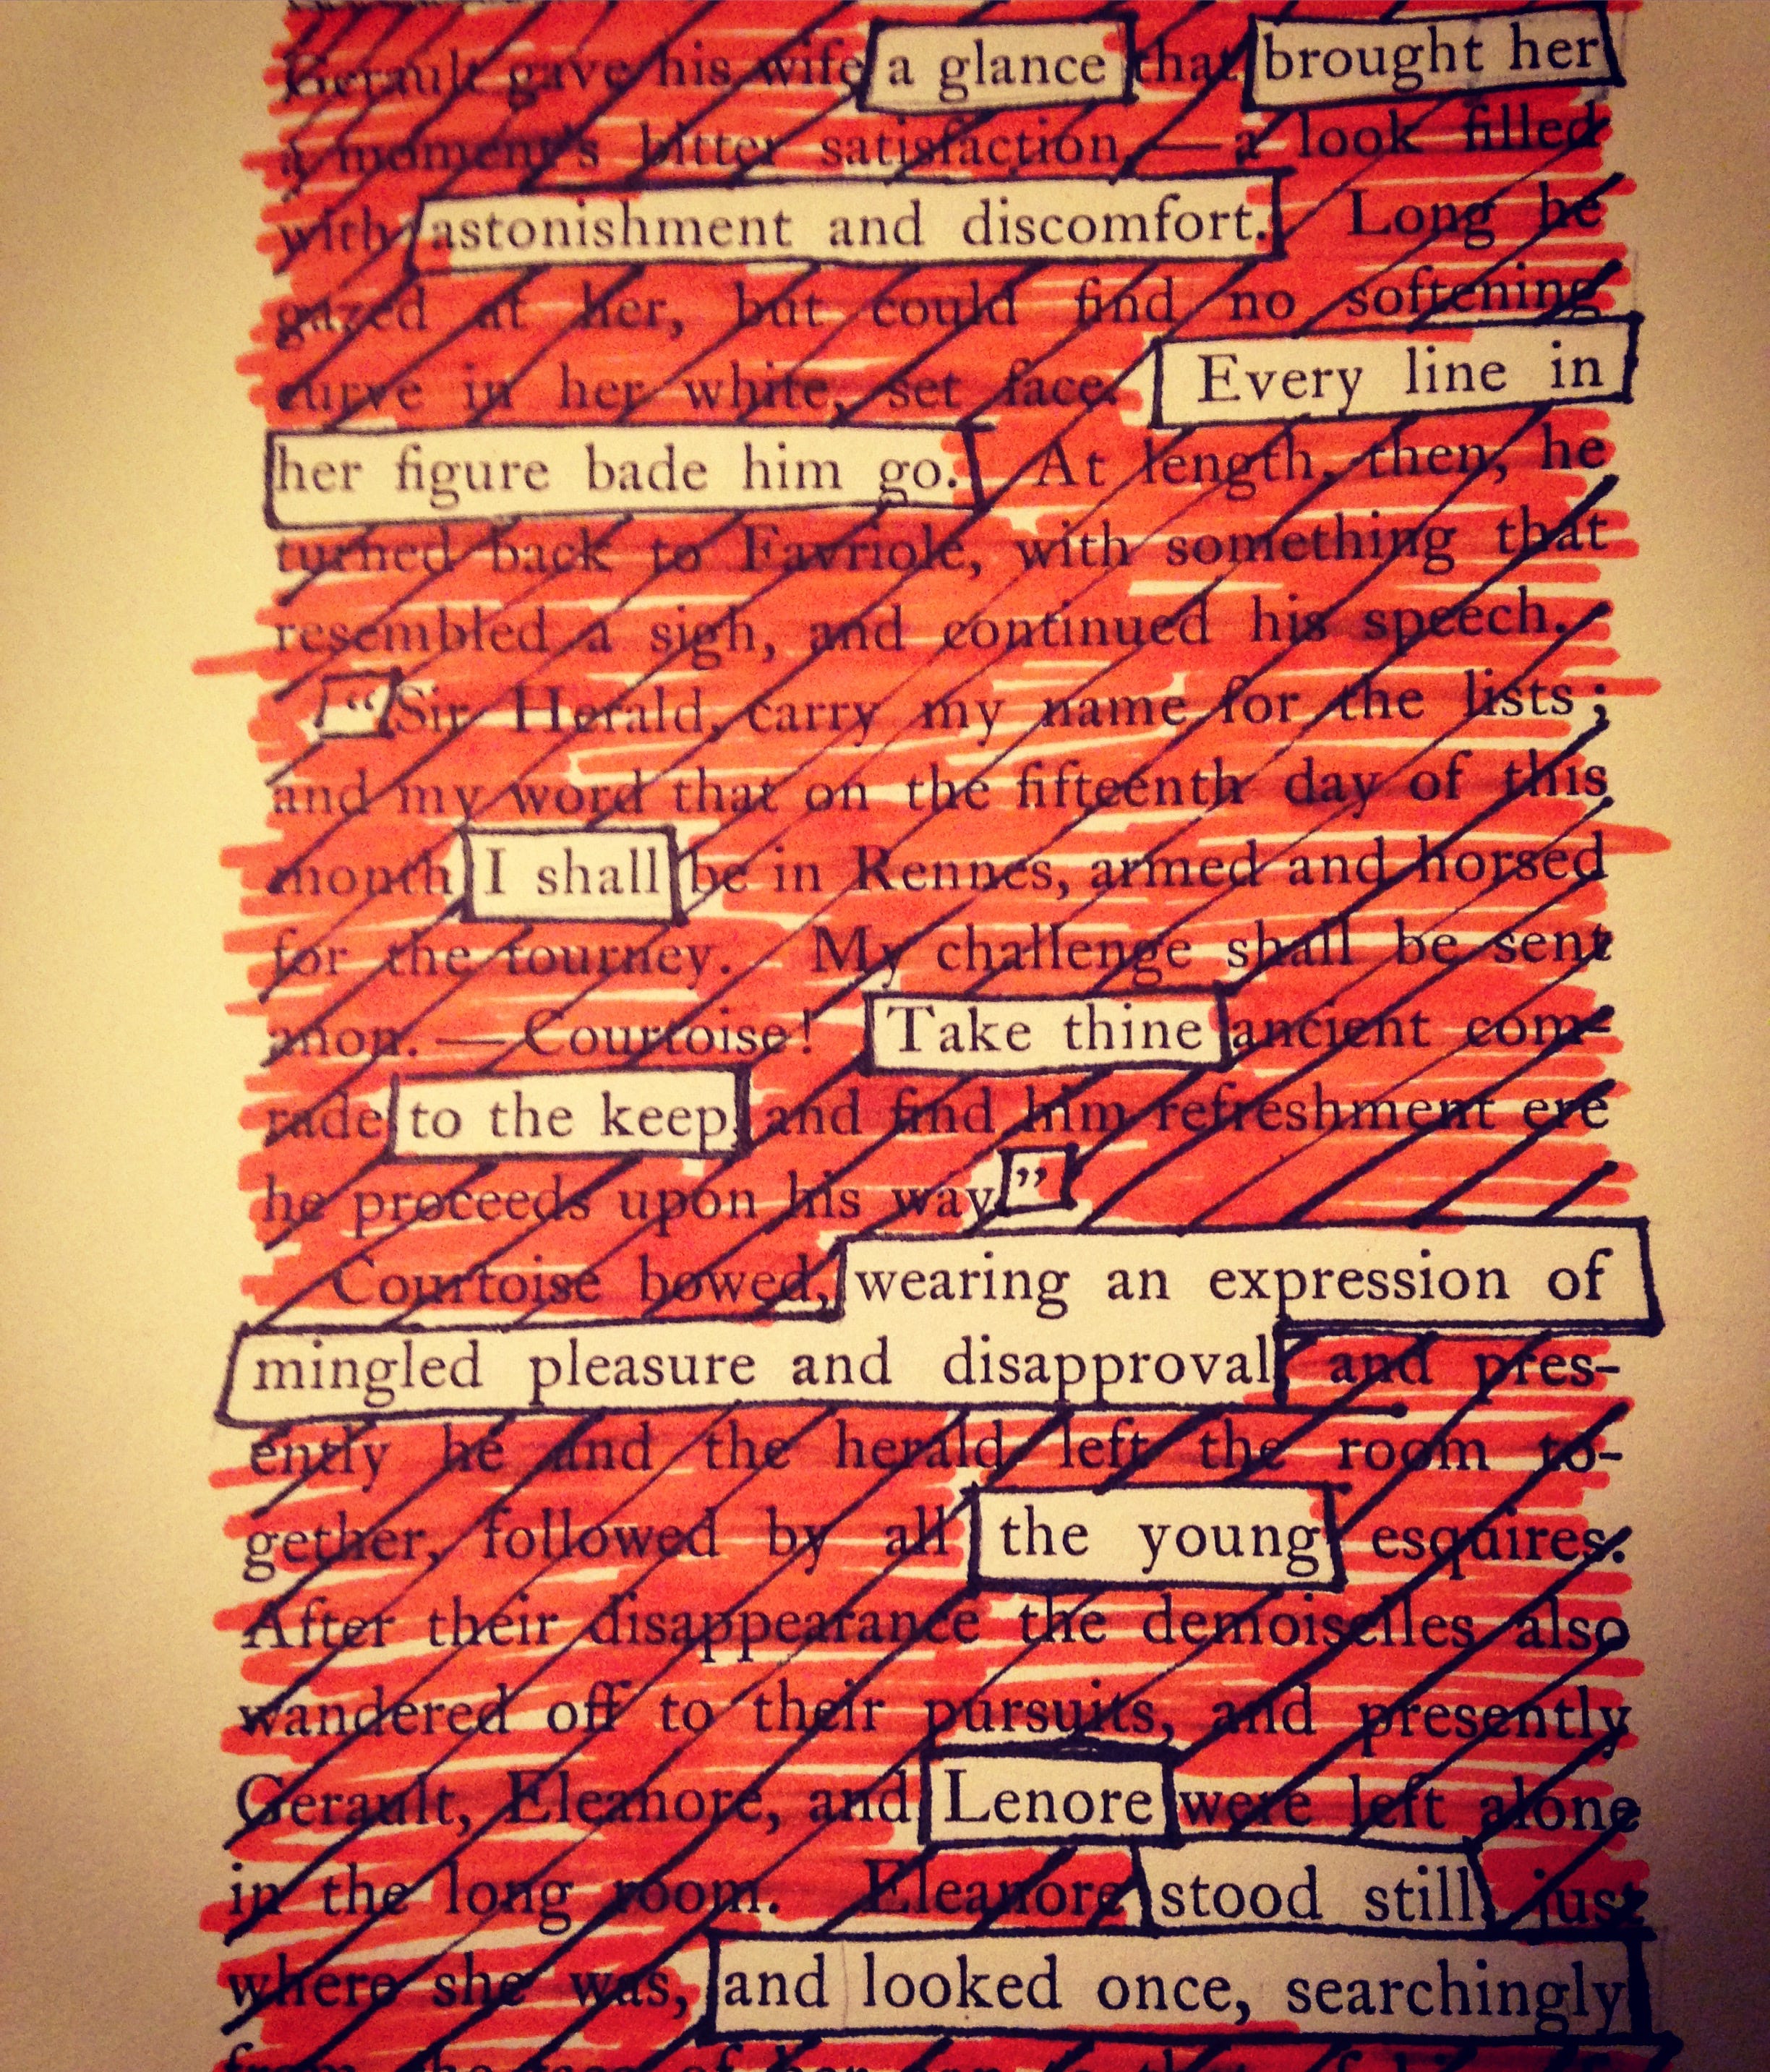 Gerault gave his wife a glance that brought her
a moment's bitter satisfaction,—a look filled
with astonishment and discomfort. Long he
gazed at her, but could find no softening
curve in her white, set face. Every line in
her figure bade him go. At length, then, he
turned back to Favriole, with something that
resembled a sigh, and continued his speech.
“Sir Herald, carry my name for the lists;
and my word that on the fifteenth day of this
month I shall be in Rennes, armed and horsed
for the tourney. My challenge shall be sent
anon.—Courtoise! Take thine ancient com-
rade to the keep, and find him refreshment ere
he proceeds upon his way.”
Courtoise bowed, wearing an expression of
mingled pleasure and disapproval, and pres-
ently he and the herald left the room to-
gether, followed by all the young esquires.
After their disappearance the demoiselles also
wandered off to their pursuits, and presently
Gerault, Eleanore, and Lenore were left alone
in the long room. Eleanore stood still just
where she was, and looked once, searchingly
from the face of her son to that of his